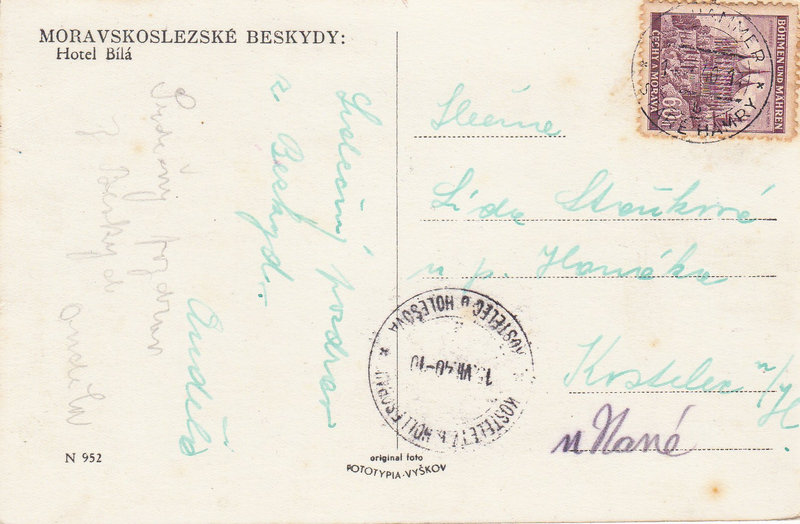 MORAVSKOSLEZSKÉ BESKYDY:
Hotel Bílá
Srdečný pozdrav
z Beskyd
Anděla
Srdečný pozdrav
z Beskyd.
Anděla
N 952
original foto
FOTOTYPIA-VYŠKOV
BÖHMEN UND MÄHREN
ČECHY A MORAVA
60
HAMMER
HAMRY
KOSTELEC U HOLEŠOVA
KOSTELETZ B. HOLLESCHAU
VII.40-10
Slečna
Lída
u p. Hanáka
Kostelec
u Hané